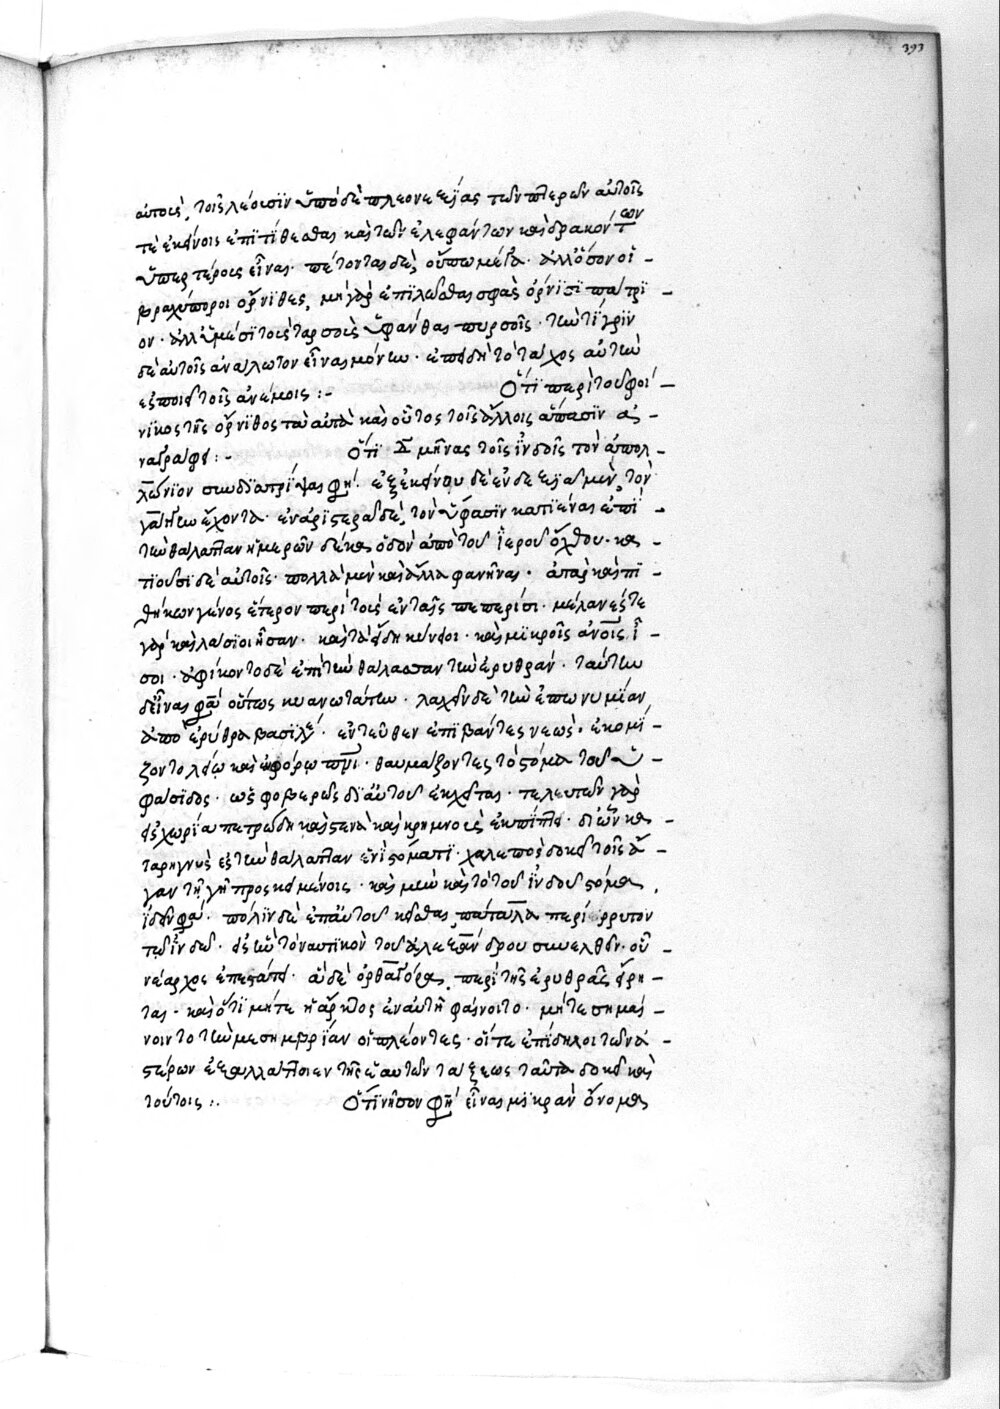 393
αὐτοὺς, τοῖς λέουσιν ὑπὸ δὲ πλεονεξίας τῶν πτερῶν αὐτοῖς
τὲ ἐκείνοις ἐπιτίθεσθαι καὶ τῶν ἐλεφάντων καὶ δρακόντων
ὑπερτέρους εἶναι· πέτονται δὲ, οὔπω μέγα· ἀλλ' ὅσον οἱ
βραχύποροι ὄρνιθες, μὴ γὰρ ἐπιλωσθαι σφᾶς ὄρνισι πάτρι
ον· ἀλλ' ὑμέσι τοὺς ταρσοὺς ὑφάνθαι πυρσοῖς· τὴν τίγριν
δὲ αὐτοῖς ἀνάλωτον εἶναι μόνην· ἐπειδὴ τὸ τάχος αὐτὴν
ἐσποιεῖ τοῖς ἀνέμοις :- Ὅτι περὶ τοῦ φοί
νικος τῆς ὄρνιθος τὰ αὐτὰ καὶ οὗτος τοῖς ἄλλοις ἅπασιν ἀ
ναγράφει :- Ὅτι δ μῆνας τοῖς ἰνδοῖς τὸν ἀπολ
λώνιον συνδιατρίψαι φη· ἐξ ἐκείνου δὲ ἐν δεξιᾷ μὲν, τὸν
γάγγην ἔχοντα· ἐν ἀριστερᾷ δὲ, τὸν ὕφασιν κατιέναι ἐπὶ
τὴν θάλατταν ἡμερῶν δέκα ὁδὸν ἀπὸ τοῦ ἱεροῦ ὄχθου· κα
τιοῦσι δὲ αὐτοῖς· πολλὰ μὲν καὶ ἄλλα φανῆναι· ἀτὰρ καὶ πι
θήκων γένος ἕτερον περὶ τοὺς ἐν ταῖς πεπερίσι· μέλανές τε
γὰρ καὶ λάσιοι ἦσαν· καὶ τὰ εἴδη κύνειοι· καὶ μικροῖς ἀνοις ἴ
σοι· ἀφίκοντο δὲ ἐπὶ τὴν θάλασσαν τὴν ἐρυθράν· ταύτην
δ' εἶναι φα οὕτως κυανωτάτην· λαχεῖν δὲ τὴν ἐπωνυμίαν
ἀπὸ ἐρύθρα βασιλέ· ἐντεῦθεν ἐπιβάντες νεὼς· ἐκομί
ζοντο λείῳ καὶ εὐφόρῳ πνι· θαυμάζοντες τὸ στόμα τοῦ ὑ
φάσιδος· ὡς φοβερῶς δι' αὐτοῦ ἐκχεῖται· τελευτῶν γὰρ
ἐς χωρία πετρώδη καὶ στενὰ καὶ κρημνοὺς ἐκπίπτει· δι' ὧν κα
ταρηγνὺς ἐς τὴν θάλατταν ἑνὶ στόματι· χαλεπὸς δοκεῖ τοῖς ἄ
γαν τῇ γῇ προσκειμένοις· καὶ μὴν καὶ τὸ τοῦ ἰνδοῦ στόμα
ἰδεῖν φα· πόλιν δὲ ἐπ' αὐτοῦ κεῖσθαι, πάταλα περίρρυτον
τῷ ἰνδῷ· ἐς ἣν τὸ ναυτικὸν τοῦ ἀλεξάνδρου συνελθεῖν· οὗ
νέαρχος ἐπετάττετο· ἃ δὲ ὀρθαγόρᾳ, περὶ τῆς ἐρυθρᾶς εἴρη
ται· καὶ ὅτι μήτε ἡ ἄρκτος ἐν αὐτῇ φαίνοιτο· μήτε σημαί
νοιντο τὴν μεσημβρίαν οἱ πλέοντες· οἵ τε ἐπίδηλοι τῶν ἀ
στέρων ἐξαλλάττοιεν τῆς ἑαυτῶν τάξεως ταῦτα δοκεῖ καὶ
τούτοις :. Ὅτι νῆσον φη εἶναι μικρὰν ὄνομα